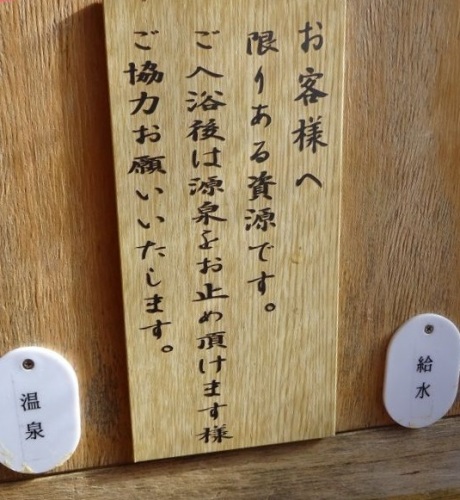 お客様へ
限りある資源です。
ご入浴後は源泉をお止め頂けます様
ご協力お願いいたします。
給水
温泉